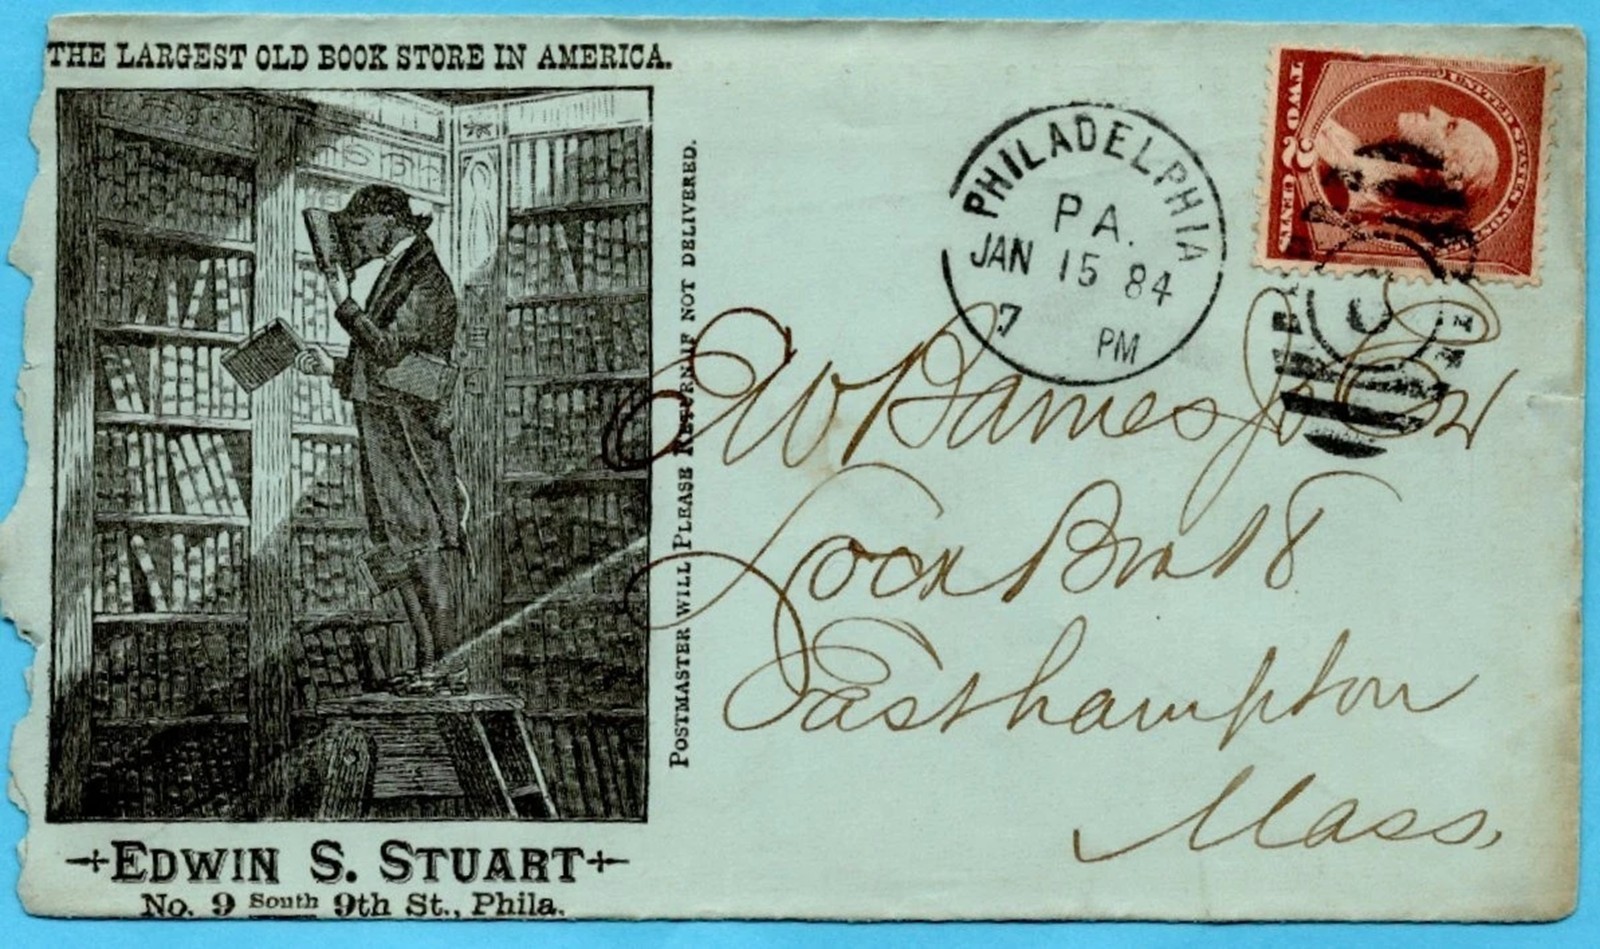 THE LARGEST OLD BOOK STORE IN AMERICA.
POSTMASTER WILL PLEASE RETURN IF NOT DELIVERED.
EDWIN S. STUART
No. 9 South 9th St., Phila.
PHILADELPHIA
PA.
JAN 15 84
7 PM
UNITED STATES POSTAGE
TWO 2 CENTS
E W Barnes Jr Esq
Lock Box 18
Easthampton
Mass.